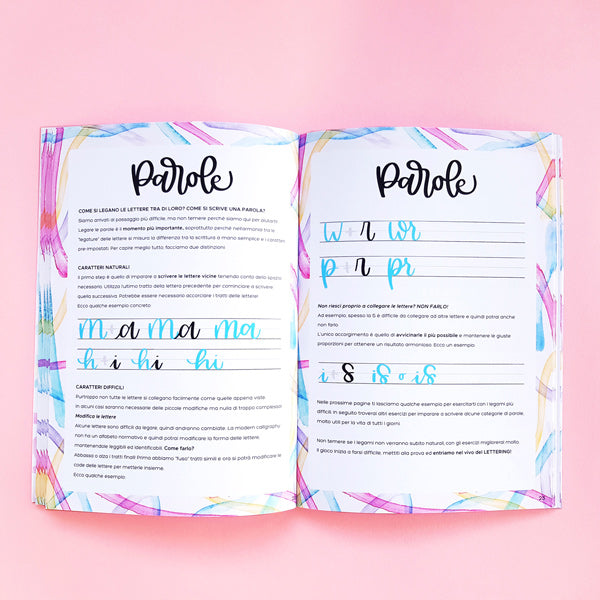 Parole
COME SI LEGANO LE LETTERE TRA DI LORO? COME SI SCRIVE UNA PAROLA?
Siamo arrivati al passaggio più difficile, ma non temere perché siamo qui per aiutarti.
Legare le parole è il momento più importante, soprattutto perché nell'armonia tra le
"legature" delle lettere si misura la differenza tra la scrittura a mano semplice e i caratteri
pre-impostati. Per capire meglio tutto, facciamo due distinzioni:
CARATTERI NATURALI
Il primo step è quello di imparare a scrivere le lettere vicine tenendo conto dello spazio
necessario. Utilizza l'ultimo tratto della lettera precedente per cominciare a scrivere
quella successiva. Potrebbe essere necessario accorciare i tratti delle lettere!
Ecco qualche esempio concreto:
m+a ma ma
h+i hi hi
CARATTERI DIFFICILI
Purtroppo non tutte le lettere si collegano facilmente come quelle appena viste,
in alcuni casi saranno necessarie delle piccole modifiche ma nulla di troppo complesso!
Modifica le lettere
Alcune lettere sono difficili da legare, quindi andranno cambiate. La modern calligraphy
non ha un alfabeto normativo e quindi potrai modificare la forma delle lettere,
mantenendole leggibili ed identificabili. Come farlo?
Abbassa o alza i tratti finali! Prima abbiamo "fuso" tratti simili e ora si potrà modificare la
code delle lettere per metterle insieme.
Ecco qualche esempio:
Parole
w+r wr
p+r pr
Non riesci proprio a collegare le lettere? NON FARLO!
Ad esempio, spesso la S è difficile da collegare ad altre lettere e quindi potrai anche
non farlo.
L'unico accorgimento è quello di avvicinarle il più possibile e mantenere le giuste
proporzioni per ottenere un risultato armonioso. Ecco un esempio:
i+s is o is
Nelle prossime pagine ti lasciamo qualche esempio per esercitarti con i legami più
difficili, in seguito troverai altri esercizi per imparare a scrivere alcune categorie di parole,
molto utili per la vita di tutti i giorni!
Non temere se i legami non verranno subito naturali, con gli esercizi migliorerai molto.
Il gioco inizia a farsi difficile, mettiti alla prova ed entriamo nel vivo del LETTERING!